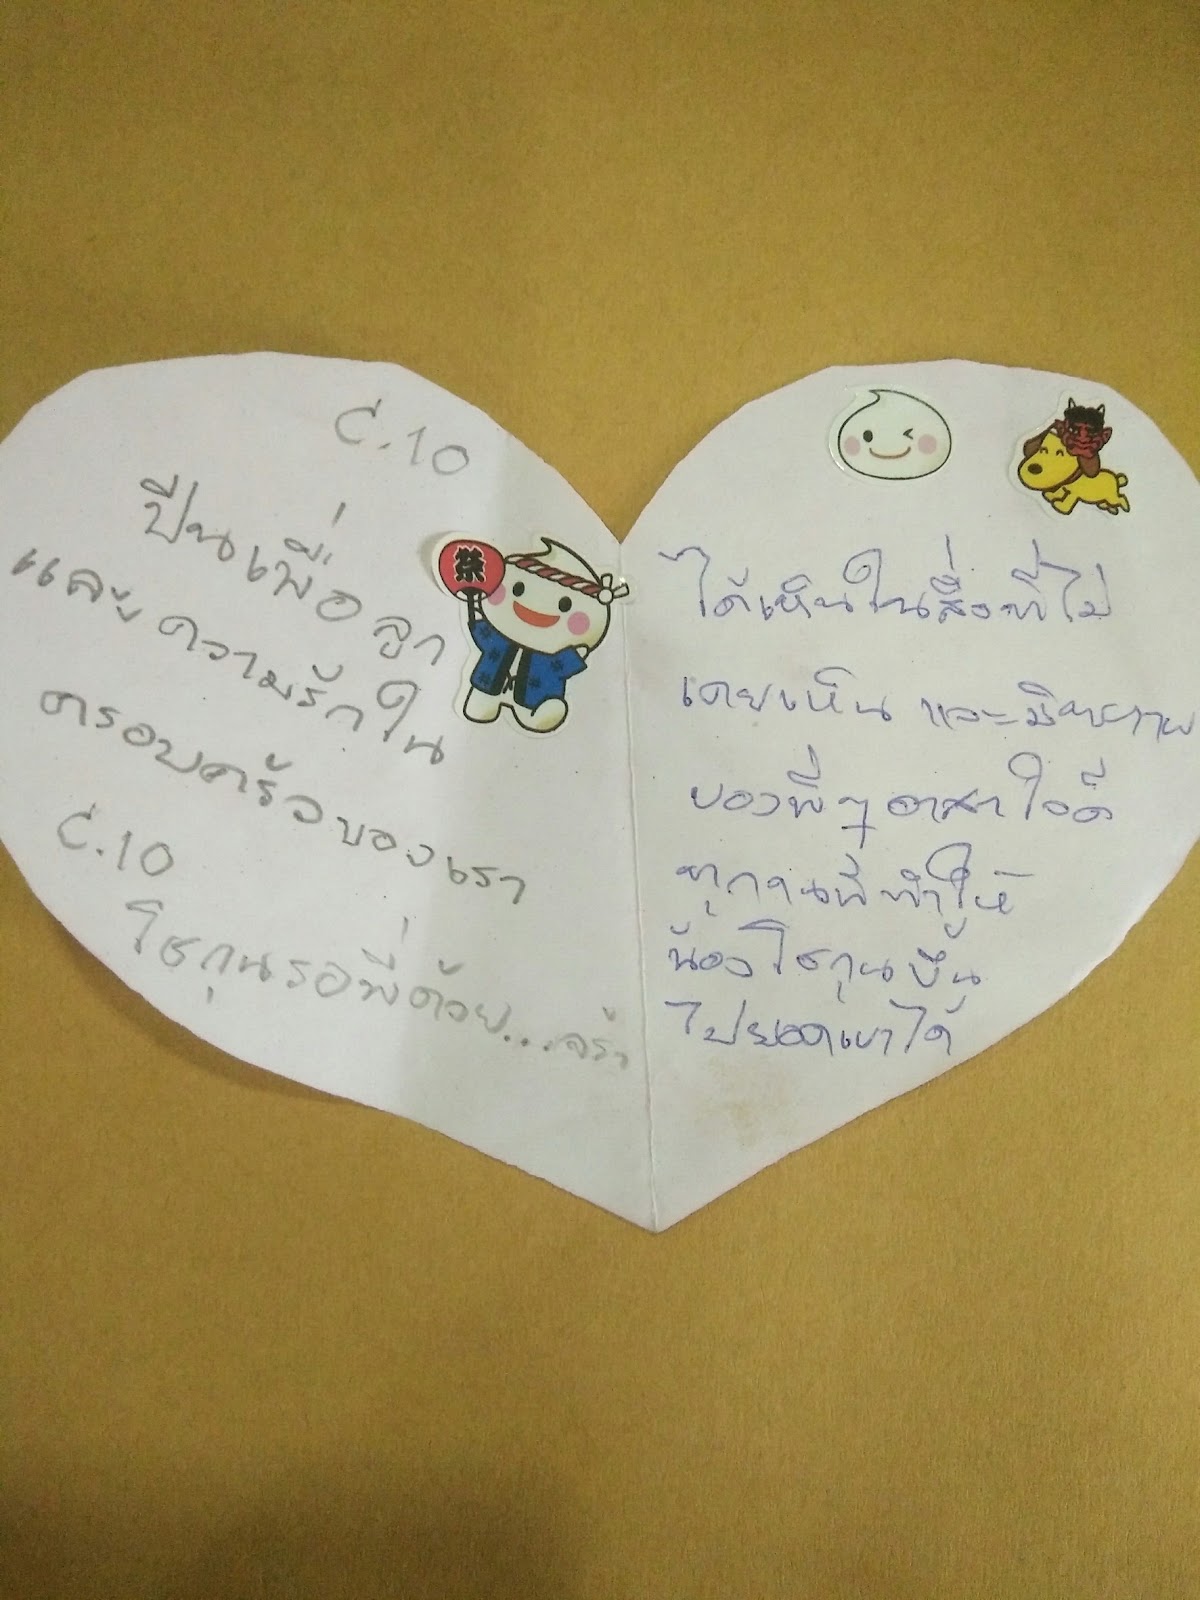 C.10
ปีนเพื่อลูก
และความรักใน
ครอบครัวของเรา
C.10
โชกุนรอพี่ด้วย...จร้า
祭
ได้เห็นในสิ่งที่ไม่
เคยเห็น และมิตรภาพ
ของพี่ๆ อาสาใจดี
ทุกคนที่ทำให้
น้องโชกุนขึ้น
ไปยอดเขาได้